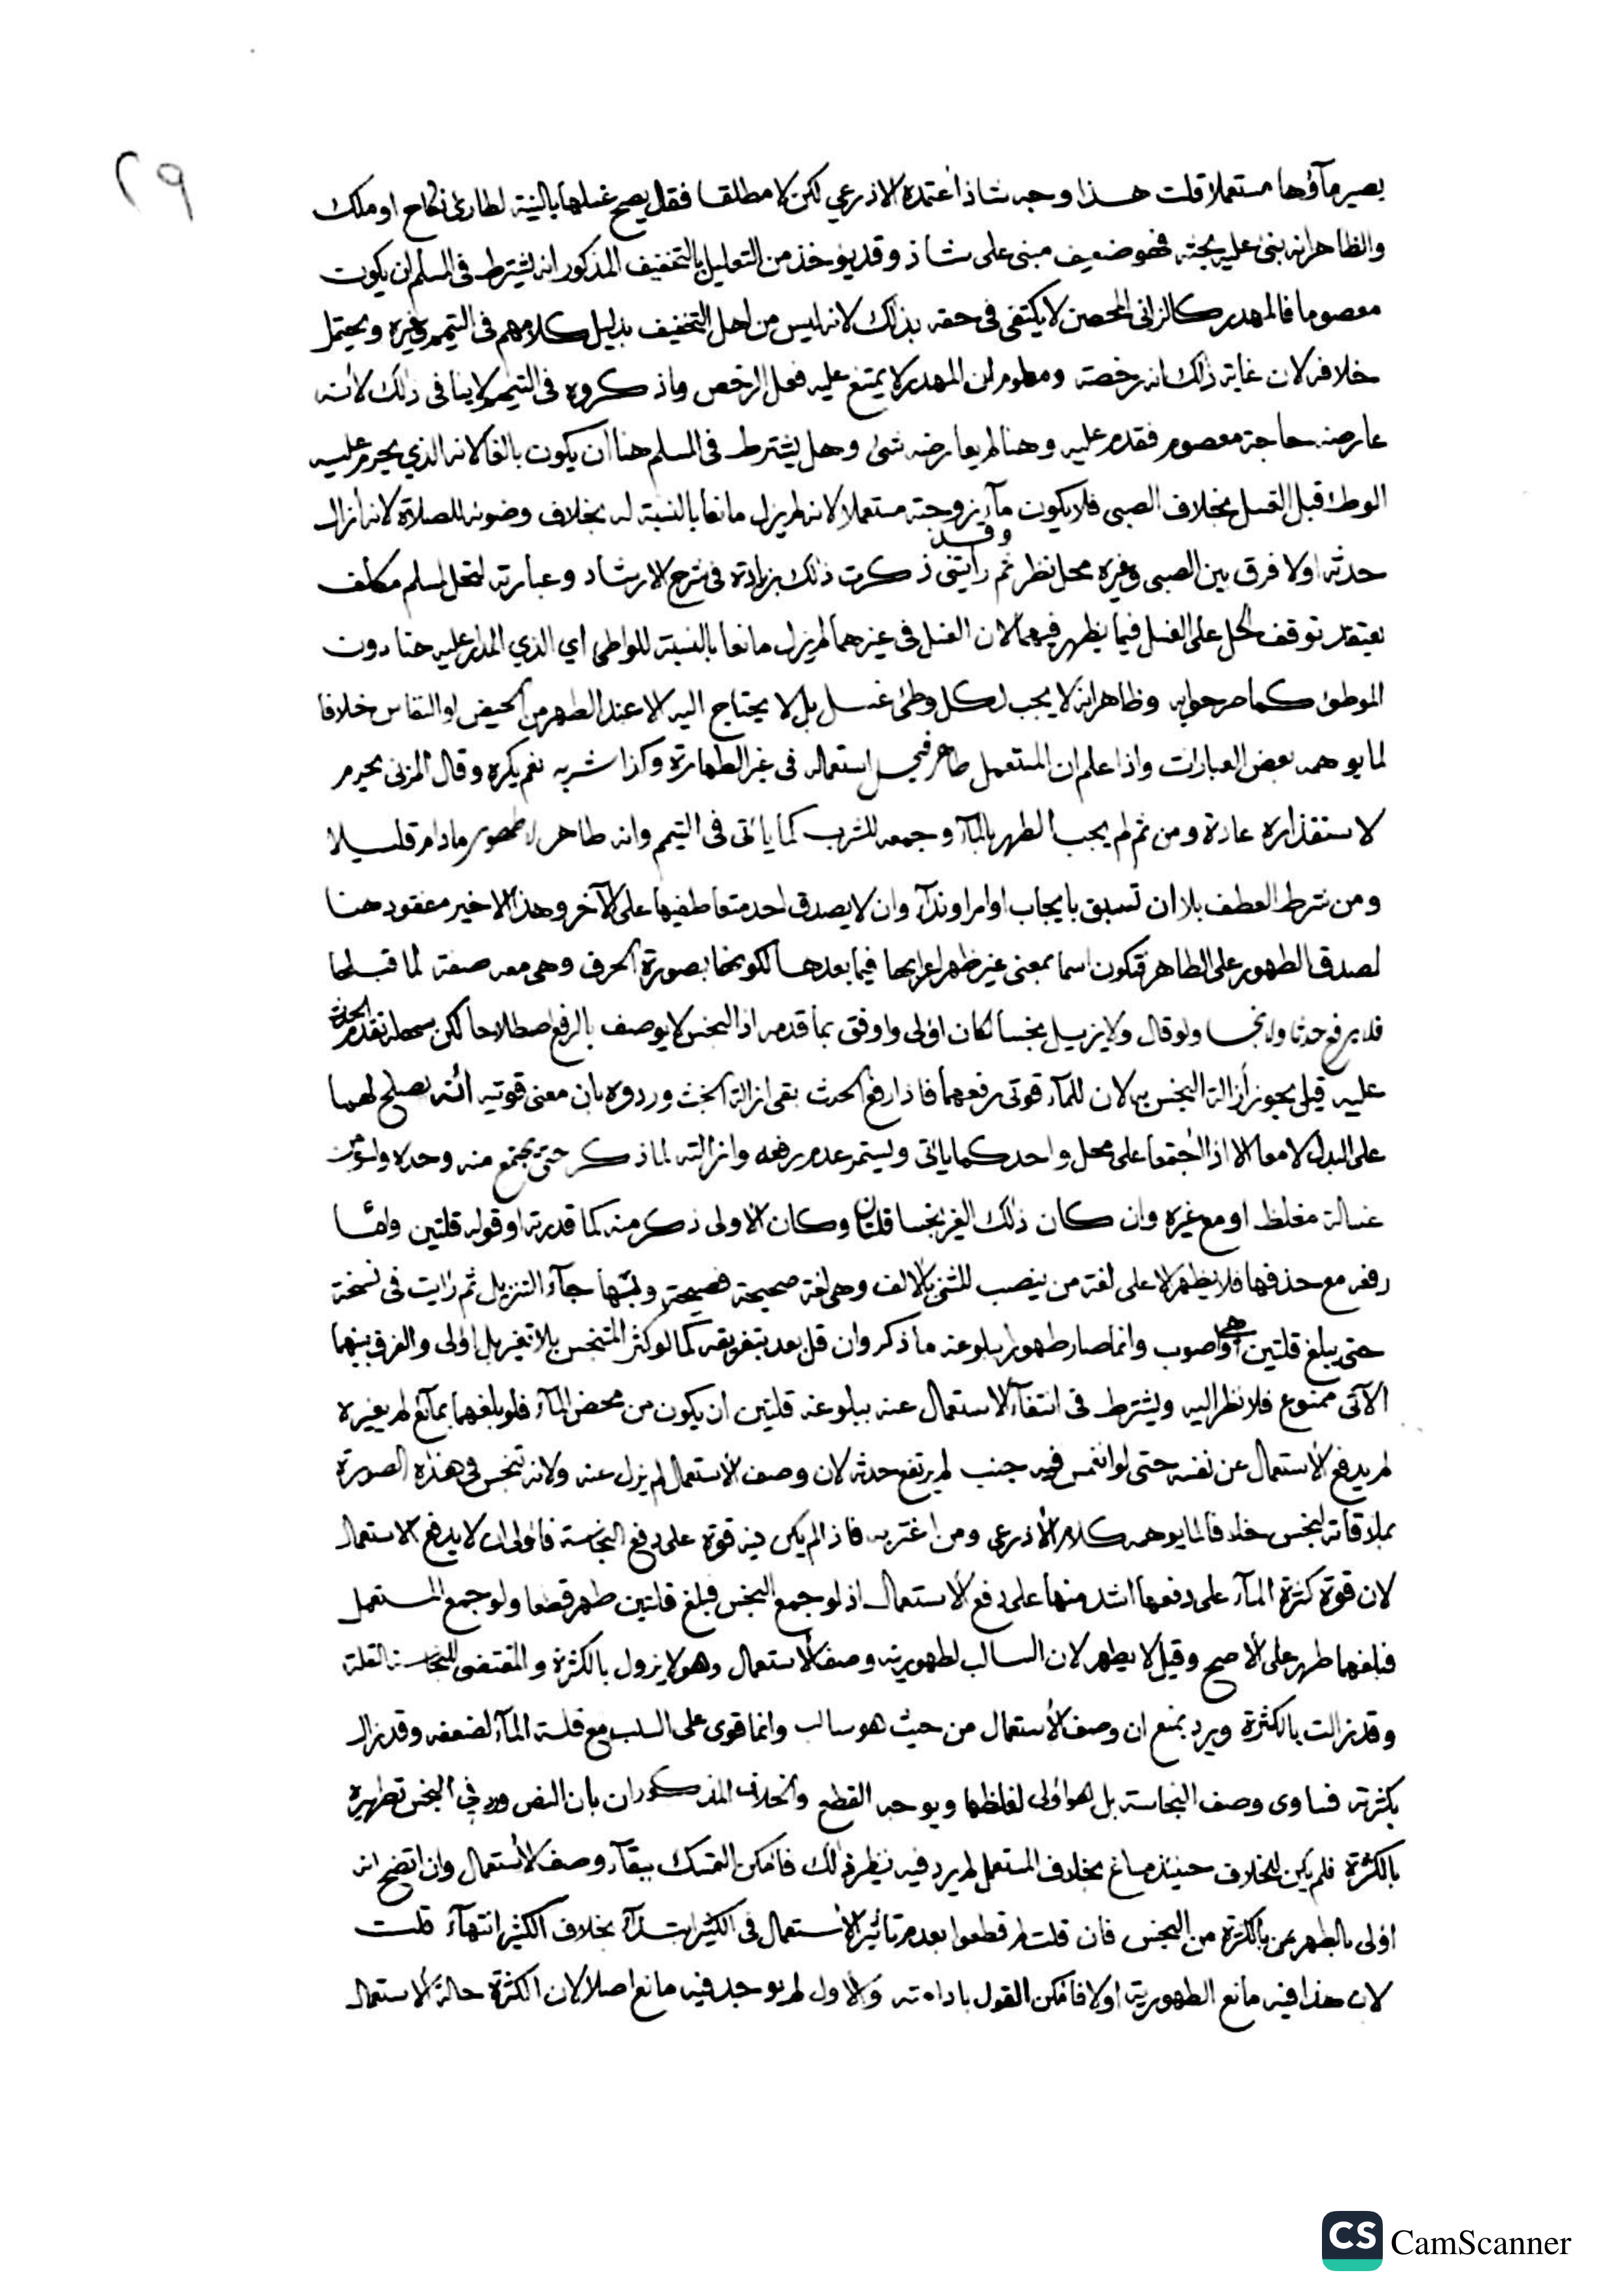 ٢٩
يصير ماؤها مستعملا قلت هذا وجه شاذ اعتمده الاذرعي لكن لا مطلقا فقال يصح غسلها بالنية لطارئ نكاح او ملك
والظاهر انه بنى عليه بحثه فهو ضعيف مبني على شاذ وقد يوخذ من التعليل بالتخفيف المذكور انه يشترط في المسلم ان يكون
معصوما فالمهدر كالزاني المحصن لا يكتفى في حقه بذلك لانه ليس من اهل التخفيف بدليل كلامهم في التيمم وغيره ويحتمل
خلافه لان غاية ذلك انه رخصة ومعلوم ان المهدر لا يمتنع عليه فعل الرخص وماذكروه في التيمم لا ينافي ذلك لأنه
عارضه حاجة معصوم فقدم عليه وهنا لم يعارضه شئ وهل يشترط في المسلم هنا ان يكون بالغا لانه الذي يحرم عليه
الوطء قبل الغسل بخلاف الصبي فلا يكون ماء زوجته مستعملا لانه لم يزل مانعا بالنسبة له بخلاف وضوئه للصلاة لانه أزال
حدثه اولا فرق بين الصبي وغيره محل نظر ثم رأيتني وقد ذكرت ذلك بزيادة في شرح الارشاد وعبارته لتحل لمسلم مكلف
يعتقد توقف الحل على الغسل فيما يظهر فيهما لان الغسل في غيرهما لم يزل مانعا بالنسبة للواطئ اي الذي المدار عليه هنا دون
الموطوء كما صرحوا به وظاهر انه لا يجب لكل وطئ غسل بل لا يحتاج اليه الا عند الطهر من الحيض او النفاس خلافا
لما يوهمه بعض العبارات واذا علم ان المستعمل طاهر فيحل استعماله في غير الطهارة وكذا شربه نعم يكره وقال المزني يحرم
لاستقذاره عادة ومن ثم لم يجب الطهر بالماء وجمعه للشرب كما يأتي في التيمم وانه طاهر لا طهور مادام قليلا
ومن شرط العطف بلا ان تسبق بايجاب او امر او نداء وان لا يصدق احد متعاطفيها على الآخر وهذا الاخير مفقود هنا
لصدق الطهور على الطاهر فتكون اسما بمعنى غير ظهر اعرابها فيما بعدها لكونها بصورة الحرف وهي معه صفة لما قبلها
فلا يرفع حدثا ولا نجسا ولو قال ولا يزيل نجسا لكان اولى واوفق بما قدمه اذ النجس لا يوصف بالرفع اصطلاحا لكن سهله تقدم الحدث
عليه قيل يجوز أزالة النجس به لان للماء قوتي رفعهما فاذا رفع الحدث بقى ازالة الخبث وردوه بان معنى قوتيه أنه يصلح لهما
على البدل لا معا الا اذا اجتمعا على محل واحد كما يأتي ويستمر عدم رفعه وازالته لما ذكر حتى يجتمع منه وحده ولو من
غسالة مغلظ او مع غيره وان كان ذلك الغير نجسا قلتان وكان الاولى ذكر منه كما قدرته او قوله قلتين واما
رفعه مع حذفها فلا يظهر الا على لغة من ينصب المثنى بالالف وهي لغة صحيحة فصيحة وبها جاء التنزيل ثم رايت في نسخة
حتى يبلغ قلتين وهي اصوب وانما صار طهورا ببلوغه ما ذكر وان قل بعد بتفريقه كما لو كثر المتنجس بلا تغير بل اولى والفرق بينهما
الآتي ممنوع فلا نظر اليه ويشترط في انتفاء الاستعمال عنه ببلوغه قلتين ان يكون من محض الماء فلو بلغهما بمائع لم يغيره
لم يدفع الأستعمال عن نفسه حتى لو انغمس فيه جنب لم يرتفع حدثه لان وصف الأستعمال لم يزل عنه ولانه تنجس في هذه الصورة
بملاقاة النجس خلافا لما يوهمه كلام الأذرعي ومن اغتر به فاذا لم يكن فيه قوة على دفع النجاسة فاولى ان لا يدفع الاستعمال
لان قوة كثرة الماء على دفعها اشد منها على دفع الأستعمال اذ لو جمع النجس فبلغ قلتين طهر قطعا ولو جمع المستعمل
فبلغهما طهر على الأصح وقيل لا يطهر لان السالب لطهوريته وصف الأستعمال وهو لا يزول بالكثرة والمقتضى للنجاسة القلة
وقد زالت بالكثرة ويرد بمنع ان وصف الأستعمال من حيث هو سالب وانما قوى على السلب مع قلة الماء لضعفه وقد زال
بكثرته فساوى وصف النجاسة بل هو اولى لغلظها ويوجه القطع والخلاف المذكوران بان النص ورد في النجس تطهيره
بالكثرة فلم يكن للخلاف حينئذ مساغ بخلاف المستعمل لم يرد فيه نظير ذلك فامكن التمسك ببقاء وصف الأستعمال وان اتضح انه
اولى بالطهر بالكثرة من النجس فان قلت لم قطعوا بعدم تأثير الأستعمال في الكثير ابتداء بخلاف الكثير انتهاء قلت
لان هذا فيه مانع الطهورية اولا فامكن القول بادامته والأول لم يوجد فيه مانع اصلا لان الكثرة حالة الأستعمال
CS CamScanner